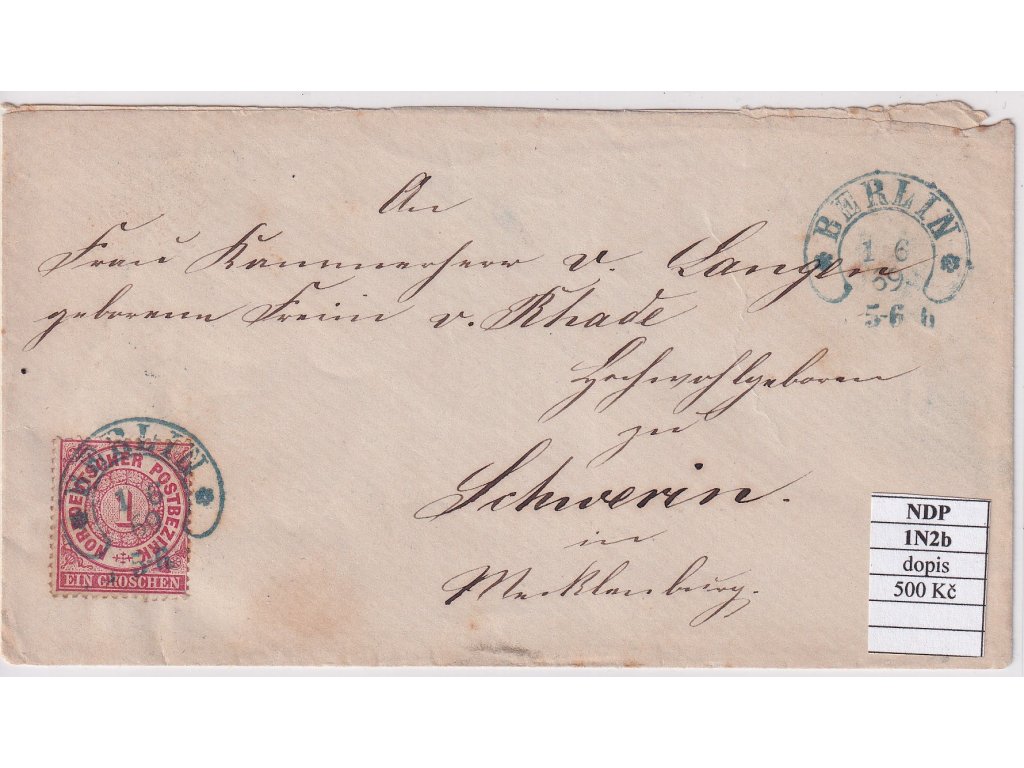 An
Frau Kammerherr v. Langen
geborenn Freiin v. Rhade
Hochwohlgeboren
zu
Schwerin.
in
Mecklenburg.
BERLIN
1 6
69
5-6 N
BERLIN
1 6
69
NORDDEUTSCHER POSTBEZIRK
1
EIN GROSCHEN
NDP
1N2b
dopis
500 Kč